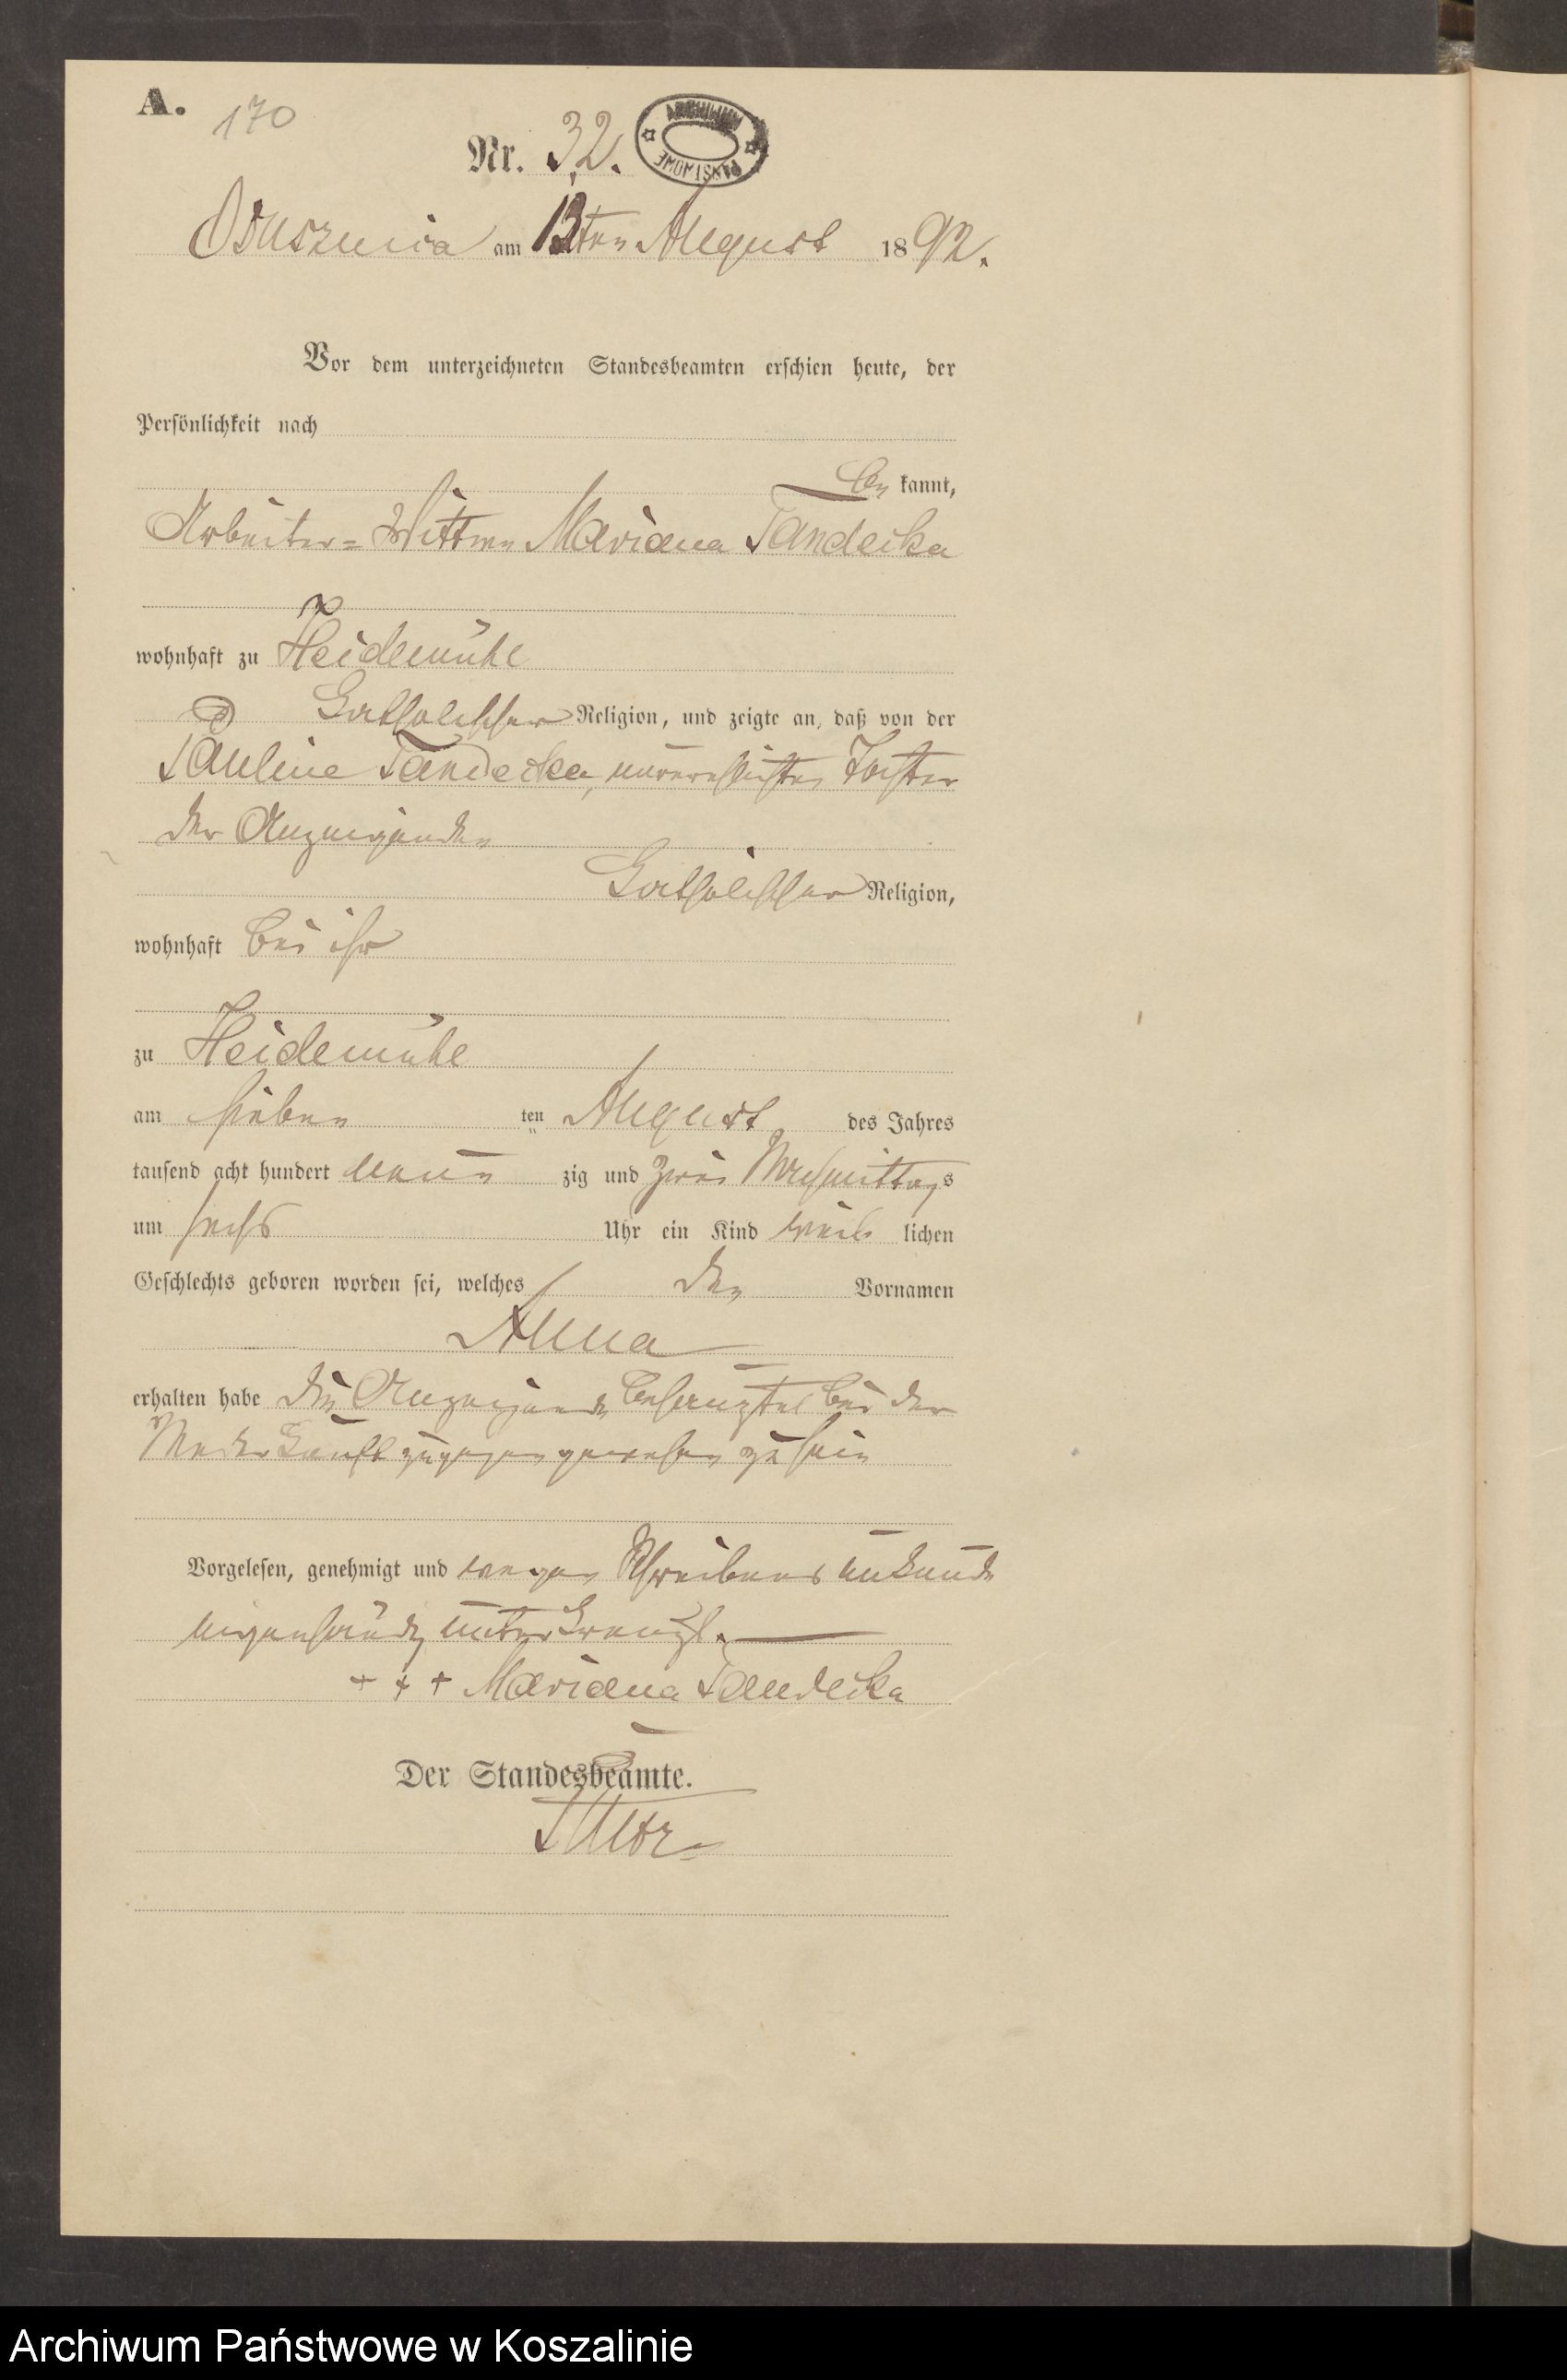 A.
170
Nr. 32.
ARCHIWUM PAŃSTWOWE
Ossusznica am 13ten August 1892.
Vor dem unterzeichneten Standesbeamten erschien heute, der
Persönlichkeit nach
bekannt,
Arbeiter-Wittwe Mariana Tandecka
wohnhaft zu Heidemühl
katholischer Religion, und zeigte an, daß von der
Pauline Tandecka, unverehlichten Tochter
der Anzeigenden
katholischer Religion,
wohnhaft bei ihr
zu Heidemühl
am sieben ten August des Jahres
tausend acht hundert neun zig und zwei Nachmittags
um sechs Uhr ein Kind weib lichen
Geschlechts geboren worden sei, welches den Vornamen
Anna
erhalten habe die Anzeigende behauptet bei der
Niederkunft zugegen gewesen zu sein
Vorgelesen, genehmigt und wegen Schreibensunkunde
eigenhändig unterkreuzt.
+ + + Mariana Tandecka
Der Standesbeamte.
Archiwum Państwowe w Koszalinie